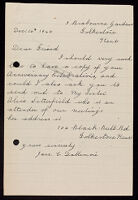 3 Brabourne Gardens
Folkestone
Kent
Dec 10th 1940
Dear Friend
I should very much
like to have a copy of your
Anniversary Celebrations, and
could I also ask you to
send out to My Sister
Alice Butterfield who is an
attender of our meetings
her address is
100 Black Bull Rd
Folkestone Kent
yours sincerely
Jane E.